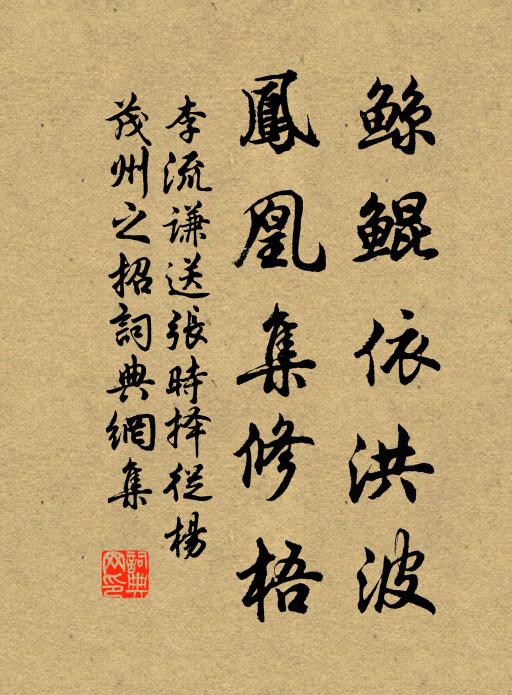 鯨鯤依洪波
鳳凰集修梧
李流謙送張時择從楊
茂州之招詞典網集
詞典网印